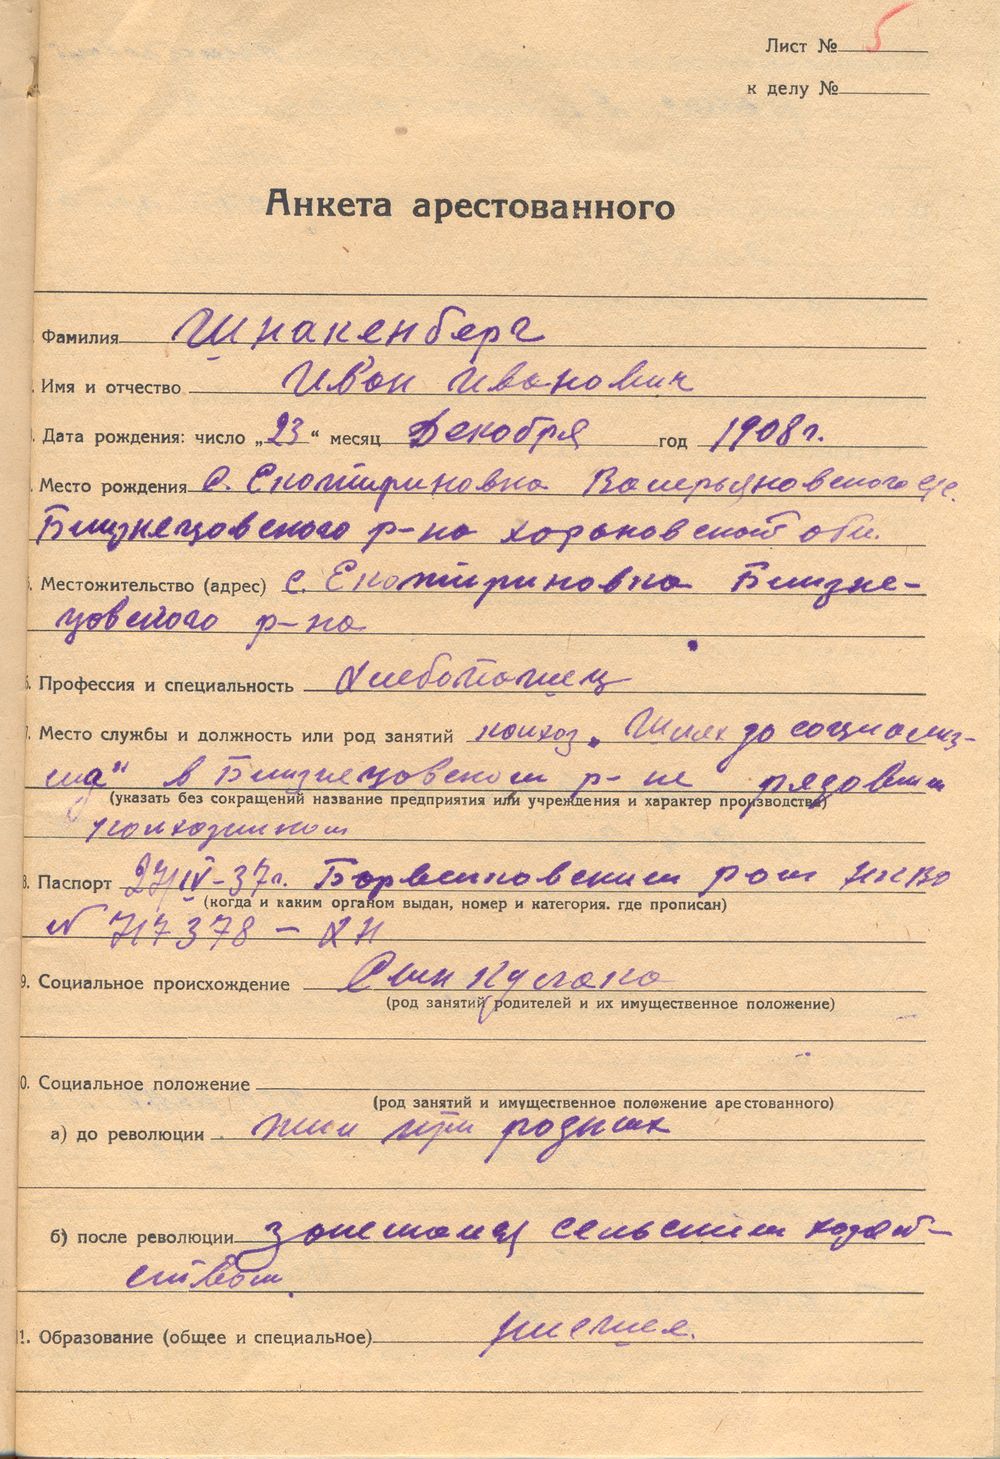 Лист № 5
к делу №
Анкета арестованного
Фамилия Шнакенберг
Имя и отчество Иван Иванович
Дата рождения: число „23“ месяц Декабря год 1908 г.
Место рождения с. Екатириновка Валерьяновского с/с.
Близнецовского р-на Харьковской обл.
Местожительство (адрес) с. Екатириновка Близне-
цовского р-на
6. Профессия и специальность хлебопашец
7. Место службы и должность или род занятий колхоз „Шлях до социализ-
ма“ в Близнецовском р-не рядовым
(указать без сокращений название предприятия или учреждения и характер производства)
колхозником
8. Паспорт 27/IV-37 г. НКВД
(когда и каким органом выдан, номер и категория. где прописан)
№ 717378 — ХН
9. Социальное происхождение Сын кулака
(род занятий родителей и их имущественное положение)
10. Социальное положение
(род занятий и имущественное положение арестованного)
а) до революции жил при родных
б) после революции занимался сельским хозяй-
ством.
11. Образование (общее и специальное) низшее.